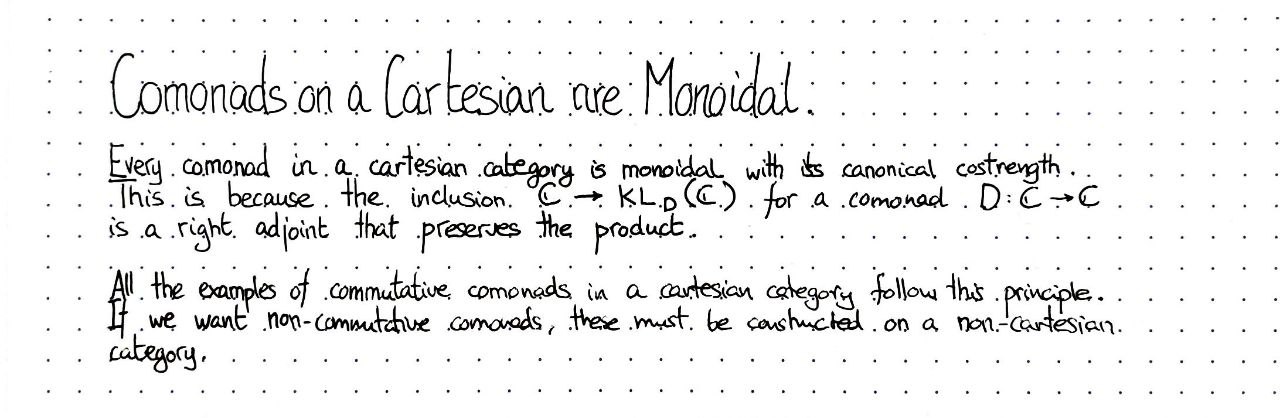 Comonads on a Cartesian are Monoidal.
Every comonad in a cartesian category is monoidal with its canonical costrength.
This is because the inclusion ℂ → KL_D(ℂ) for a comonad D: ℂ → ℂ
is a right adjoint that preserves the product.
All the examples of commutative comonads in a cartesian category follow this principle.
If we want non-commutative comonads, these must be constructed on a non-cartesian
category.